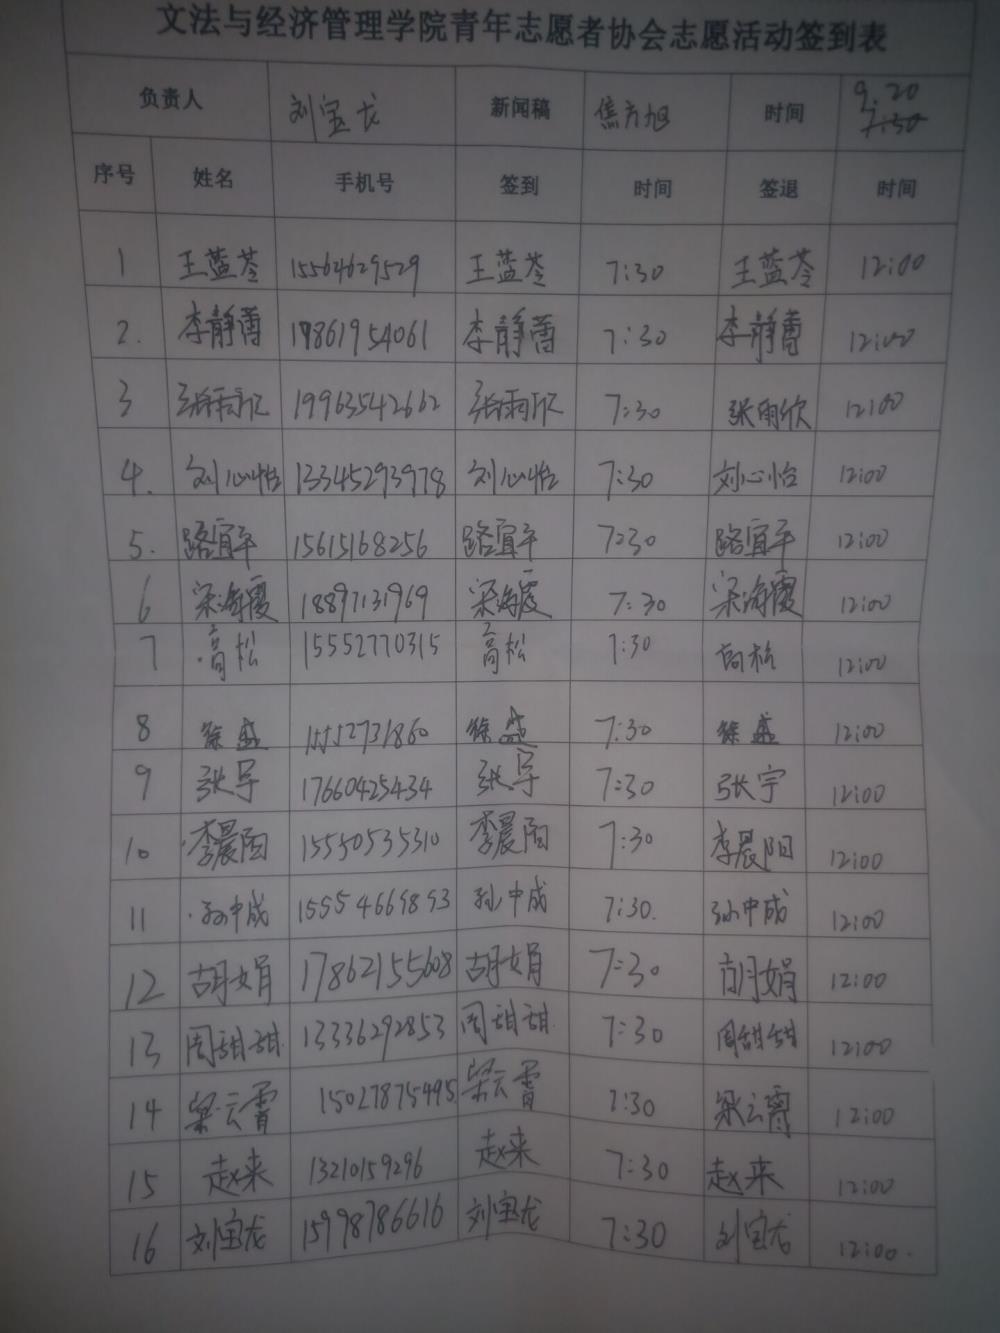 文法与经济管理学院青年志愿者协会志愿活动签到表
负责人 刘宝龙 新闻稿 焦方旭 时间 9.20
7:30
序号 姓名 手机号 签到 时间 签退 时间
1 王蓝苓 15564629529 王蓝苓 7:30 王蓝苓 12:00
2. 李静蕾 17861954061 李静蕾 7:30 李静蕾 12:00
3 张雨欣 19963542662 张雨欣 7:30 张雨欣 12:00
4. 刘心怡 13345293978 刘心怡 7:30 刘心怡 12:00
5. 路宜平 15615168256 路宜平 7:30 路宜平 12:00
6 梁海霞 18897131969 梁海霞 7:30 梁海霞 12:00
7 高松 15552770315 高松 7:30 高松 12:00
8 徐盛 15552731860 徐盛 7:30 徐盛 12:00
9 张宇 17660425434 张宇 7:30 张宇 12:00
10 李晨阳 15550535310 李晨阳 7:30 李晨阳 12:00
11 孙中成 15554669893 孙中成 7:30. 孙中成 12:00
12 胡娟 17862155608 胡娟 7:30 胡娟 12:00
13 周甜甜 13336292853 周甜甜 7:30 周甜甜 12:00
14 梁云霄 15027875495 梁云霄 7:30 梁云霄 12:00
15 赵来 13210159296 赵来 7:30 赵来 12:00
16 刘宝龙 15998786616 刘宝龙 7:30 刘宝龙 12:00.